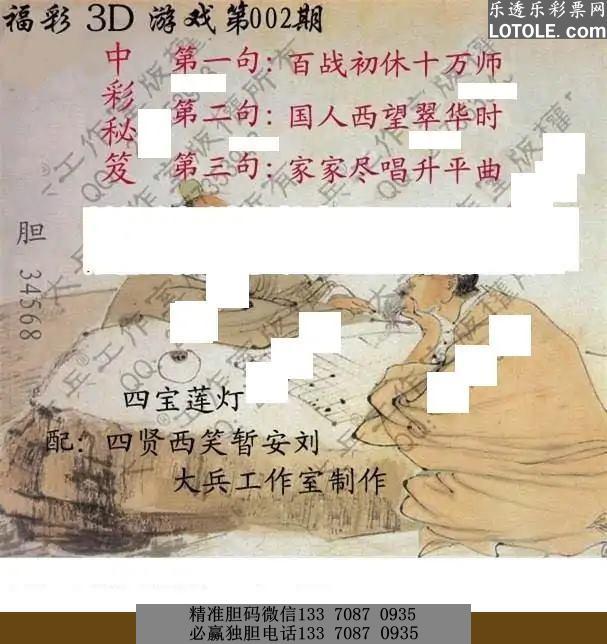 福彩 3D 游戏第002期
乐透乐彩票网
LOTOLE.COM
中彩秘笈
第一句：百战初休十万师
第二句：国人西望翠华时
第三句：家家尽唱升平曲
胆 34568
四宝莲灯
配：四贤西笑暂安刘
大兵工作室制作
精准胆码微信133 7087 0935
必赢独胆电话133 7087 0935